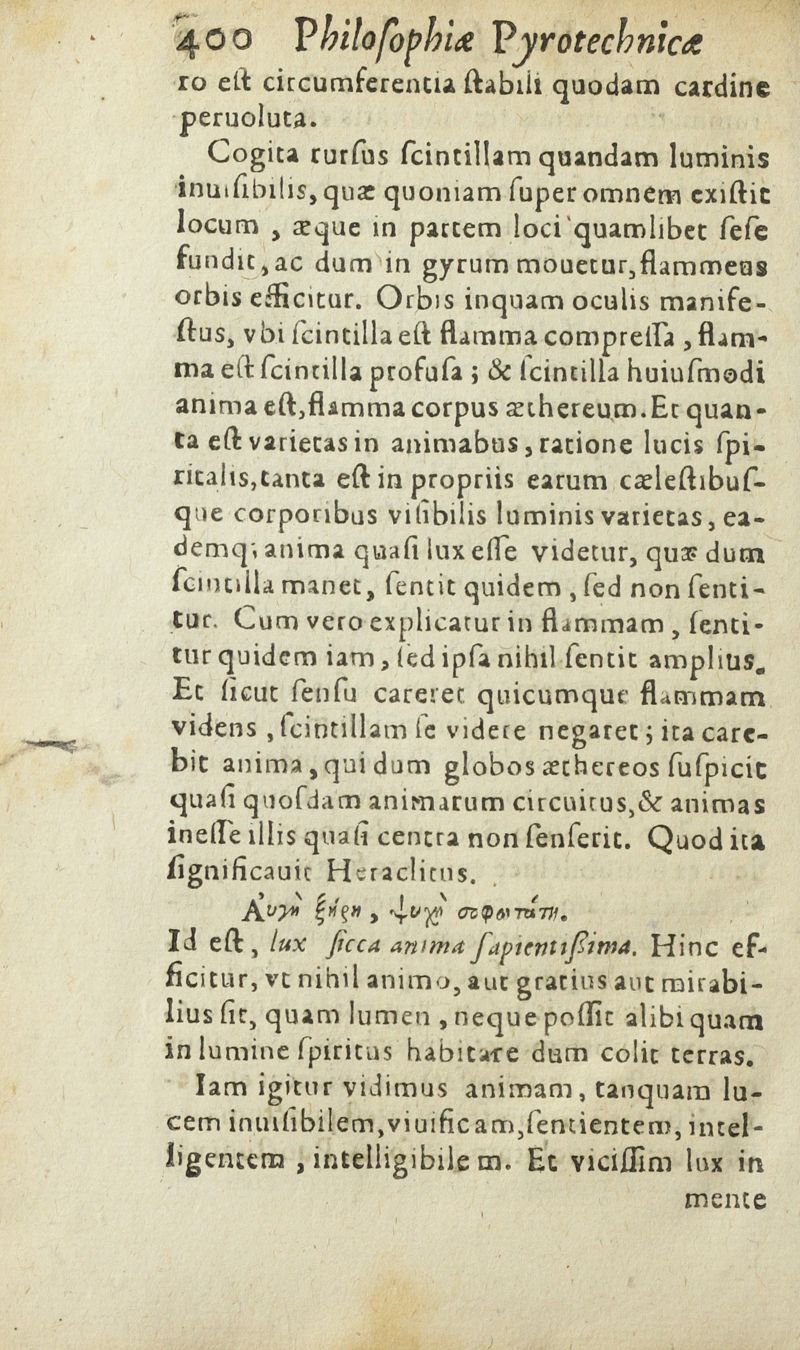 400 Philoſophiæ Pyrotechnicæ
ro eſt circumferentia ſtabili quodam cardine
peruoluta.
Cogita rurſus ſcintillam quandam luminis
inuiſibilis, quæ quoniam ſuper omnem exiſtit
locum , æque in partem loci quamlibet ſeſe
fundit, ac dum in gyrum mouetur, flammeus
orbis efficitur. Orbis inquam oculis manife-
ſtus, vbi ſcintilla eſt flamma compreſſa , flam-
ma eſt ſcintilla profuſa ; & ſcintilla huiuſmodi
anima eſt, flamma corpus æthereum. Et quan-
ta eſt varietas in animabus, ratione lucis ſpi-
ritalis, tanta eſt in propriis earum cæleſtibuſ-
que corporibus viſibilis luminis varietas, ea-
demq; anima quaſi lux eſſe videtur, quæ dum
ſcintilla manet, ſentit quidem , ſed non ſenti-
tur. Cum vero explicatur in flammam , ſenti-
tur quidem iam , ſed ipſa nihil ſentit amplius.
Et ſicut ſenſu careret quicumque flammam
videns , ſcintillam ſe videre negaret ; ita care-
bit anima , qui dum globos æthereos ſuſpicit
quaſi quoſdam animarum circuitus, & animas
ineſſe illis quaſi centra non ſenſerit. Quod ita
ſignificauit Heraclitus.
Αυγὴ ξηρὴ , ψυχὴ σοφωτάτη.
Id eſt , lux ſicca anima ſapientiſſima. Hinc ef-
ficitur, vt nihil animo, aut gratius aut mirabi-
lius ſit, quam lumen , neque poſſit alibi quam
in lumine ſpiritus habitare dum colit terras.
Iam igitur vidimus animam, tanquam lu-
cem inuiſibilem, viuificam, ſentientem, intel-
ligentem , intelligibilem. Et viciſſim lux in
mente